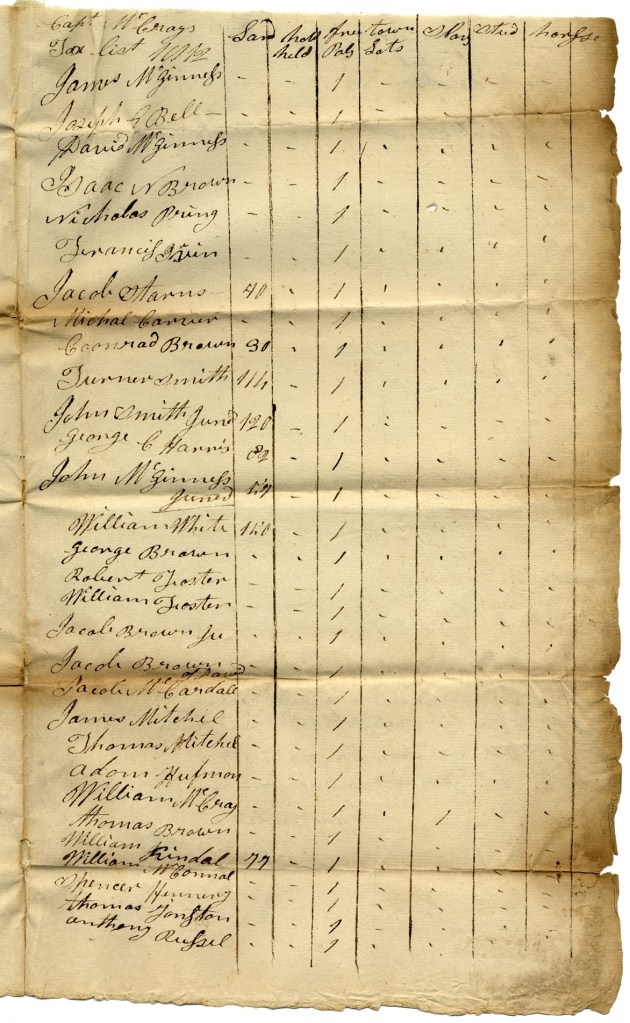 Capt McCrays Land hold free town Slav Stud horsse
Tax list held Pols Lots
James McGinness - - 1 - - - -
Joseph G Bell - - - 1 - - - -
David McGinness - - 1 - - - -
Isaac N Brown - - 1 - - - -
Nicholas Pring - - 1 - - - -
Francis - - 1 - - - -
Jacob Starns 40 - 1 - - - -
Michal Carver - - 1 - - - -
Coonrad Brown 30 - 1 - - - -
Turner Smith 114 - 1 - - - -
John Smith Juned 120 - 1 - - - -
George C Harris 82 - 1 - - - -
John McGinness
Juned 157 - 1 - - - -
William White 150 - 1 - - - -
George Brown - - 1 - - - -
Robert Foster - - 1 - - - -
William Foster - - 1 - - - -
Jacob Brown Ju - - 1 - - - -
Jacob Brown - - 1 - - - -
of David
Jacob McCardall - - 1 - - - -
James Mitchel - - 1 - - - -
Thomas Mitchel - - 1 - - - -
adom Hufmon - - 1 - - - -
William McCray - - 1 - 1 - -
thomas Brown - - 1 - - - -
William Kindal 77 - 1 - - - -
William McConnal - - 1 - - - -
Spencer Henning - - 1 - - - -
thomas Jonston - - 1 - - - -
anthony Russel - - 1 - - - -